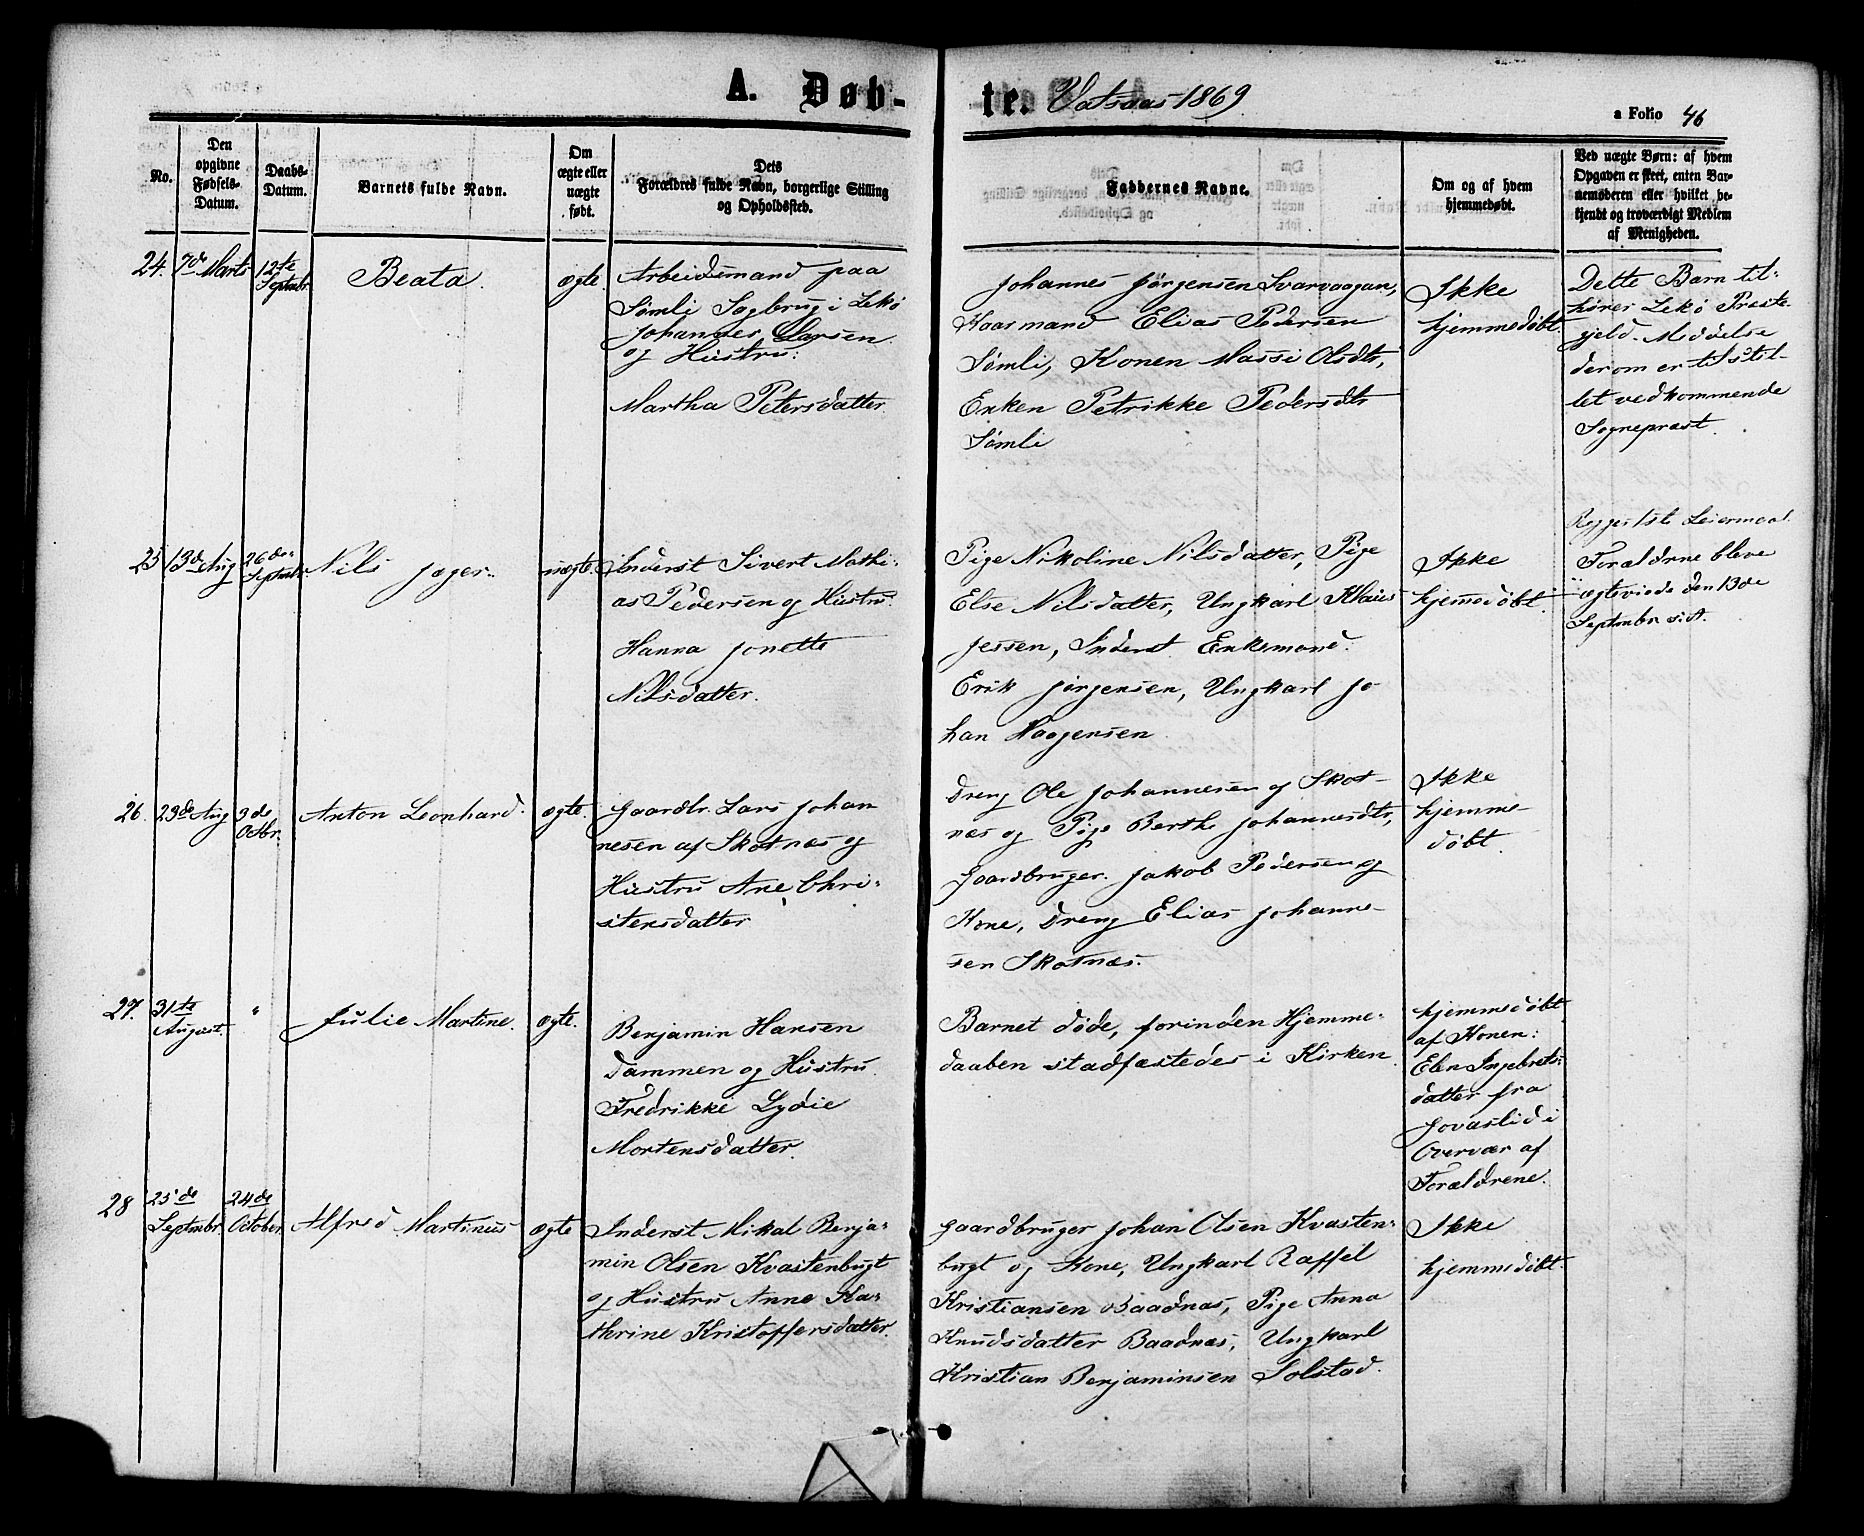 A. Døb-
te. Vatsaas 1869.
a Folio 46
No.
Den
opgivne
Fødsels-
Datum.
Daabs-
Datum.
Barnets fulde Navn.
Om
ægte eller
uægte
født.
Dets
Forældres fulde Navn, borgerlige Stilling
og Opholdssted.
Faddernes Navne.
Om og af hvem
hjemmedøbt.
Ved uægte Børn: af hvem
Opgaven er skeet, enten Bar-
nemoderen eller hvilket be-
kjendt og troværdigt Medlem
af Menigheden.
24.
7de Marts
12te
Septmbr.
Beata.
ægte.
Arbeidsmand paa
Sømli Sagbrug i Lekø
Johannes Larsen
og Hustru:
Martha Petersdatter.
Johannes Jørgensen Svarvaagan,
Kaarmand Elias Pedersen
Sømli, Konen Massi Olsdtr,
Enken Petrikke Pedersdtr
Sømli
Ikke
hjemmedøbt.
Dette Barn til-
hører Lekø Præste-
gjeld. Meddelse
derom er tilstil-
let vedkommende
Sognepræst.
25
13de Aug
26de
Septmbr.
Nils Jæger.
uægte.
Inderst Sivert Mathi-
as Pedersen og Hustru.
Hanna Jonette
Nilsdatter.
Pige Nikoline Nilsdatter, Pige
Else Nilsdatter, Ungkarl Klaus
Jessen, Inderst Enkemand.
Erik Jørgensen, Ungkarl Jo
han Haagensen
Ikke
hjemmedøbt.
Begges 1ste Leiermaal.
Forældrne bleve
ægteviede den 13de
Septmbr sidst.
26.
23de Aug
3de
Octbr.
Anton Leonhard.
ægte.
Gaardbr. Lars Johan
nesen af Skotnæs og
Hustru Ane Chri-
stensdatter
Dreng Ole Johannesen af Skot-
næs og Pige Berthe Johannesdtr,
Gaardbruger. Jakob Pedersen og
Kone, Dreng Elias Johanne-
sen Skotnæs.
Ikke
hjemme-
døbt.
27.
31te
August.
"
Julie Martine.
ægte.
Benjamin Hansen
Dammen og Hustru.
Fredrikke Lydie
Mortensdatter.
Barnet døde, forinden Hjemme-
daaben stadfæstedes i Kirken
hjemmedøbt
af Konen:
Elen Ingebrets-
datter fra
Jovaslid i
Overvær af
Forældrene.
28
25de
Septmbr.
24de
October.
Alfred Martinus
ægte
Inderst Mikal Benja-
min Olsen Kvastenbugt
og Hustru Anne Ka-
thrine Kristoffersdatter.
Gaardbruger Johan Olsen Kvasten-
bugt og Kone, Ungkarl Raffel
Kristiansen Baadnæs, Pige Anna
Knudsdatter Baadnæs, Ungkarl
Kristian Benjaminsen Solstad.
Ikke
hjemmedøbt.